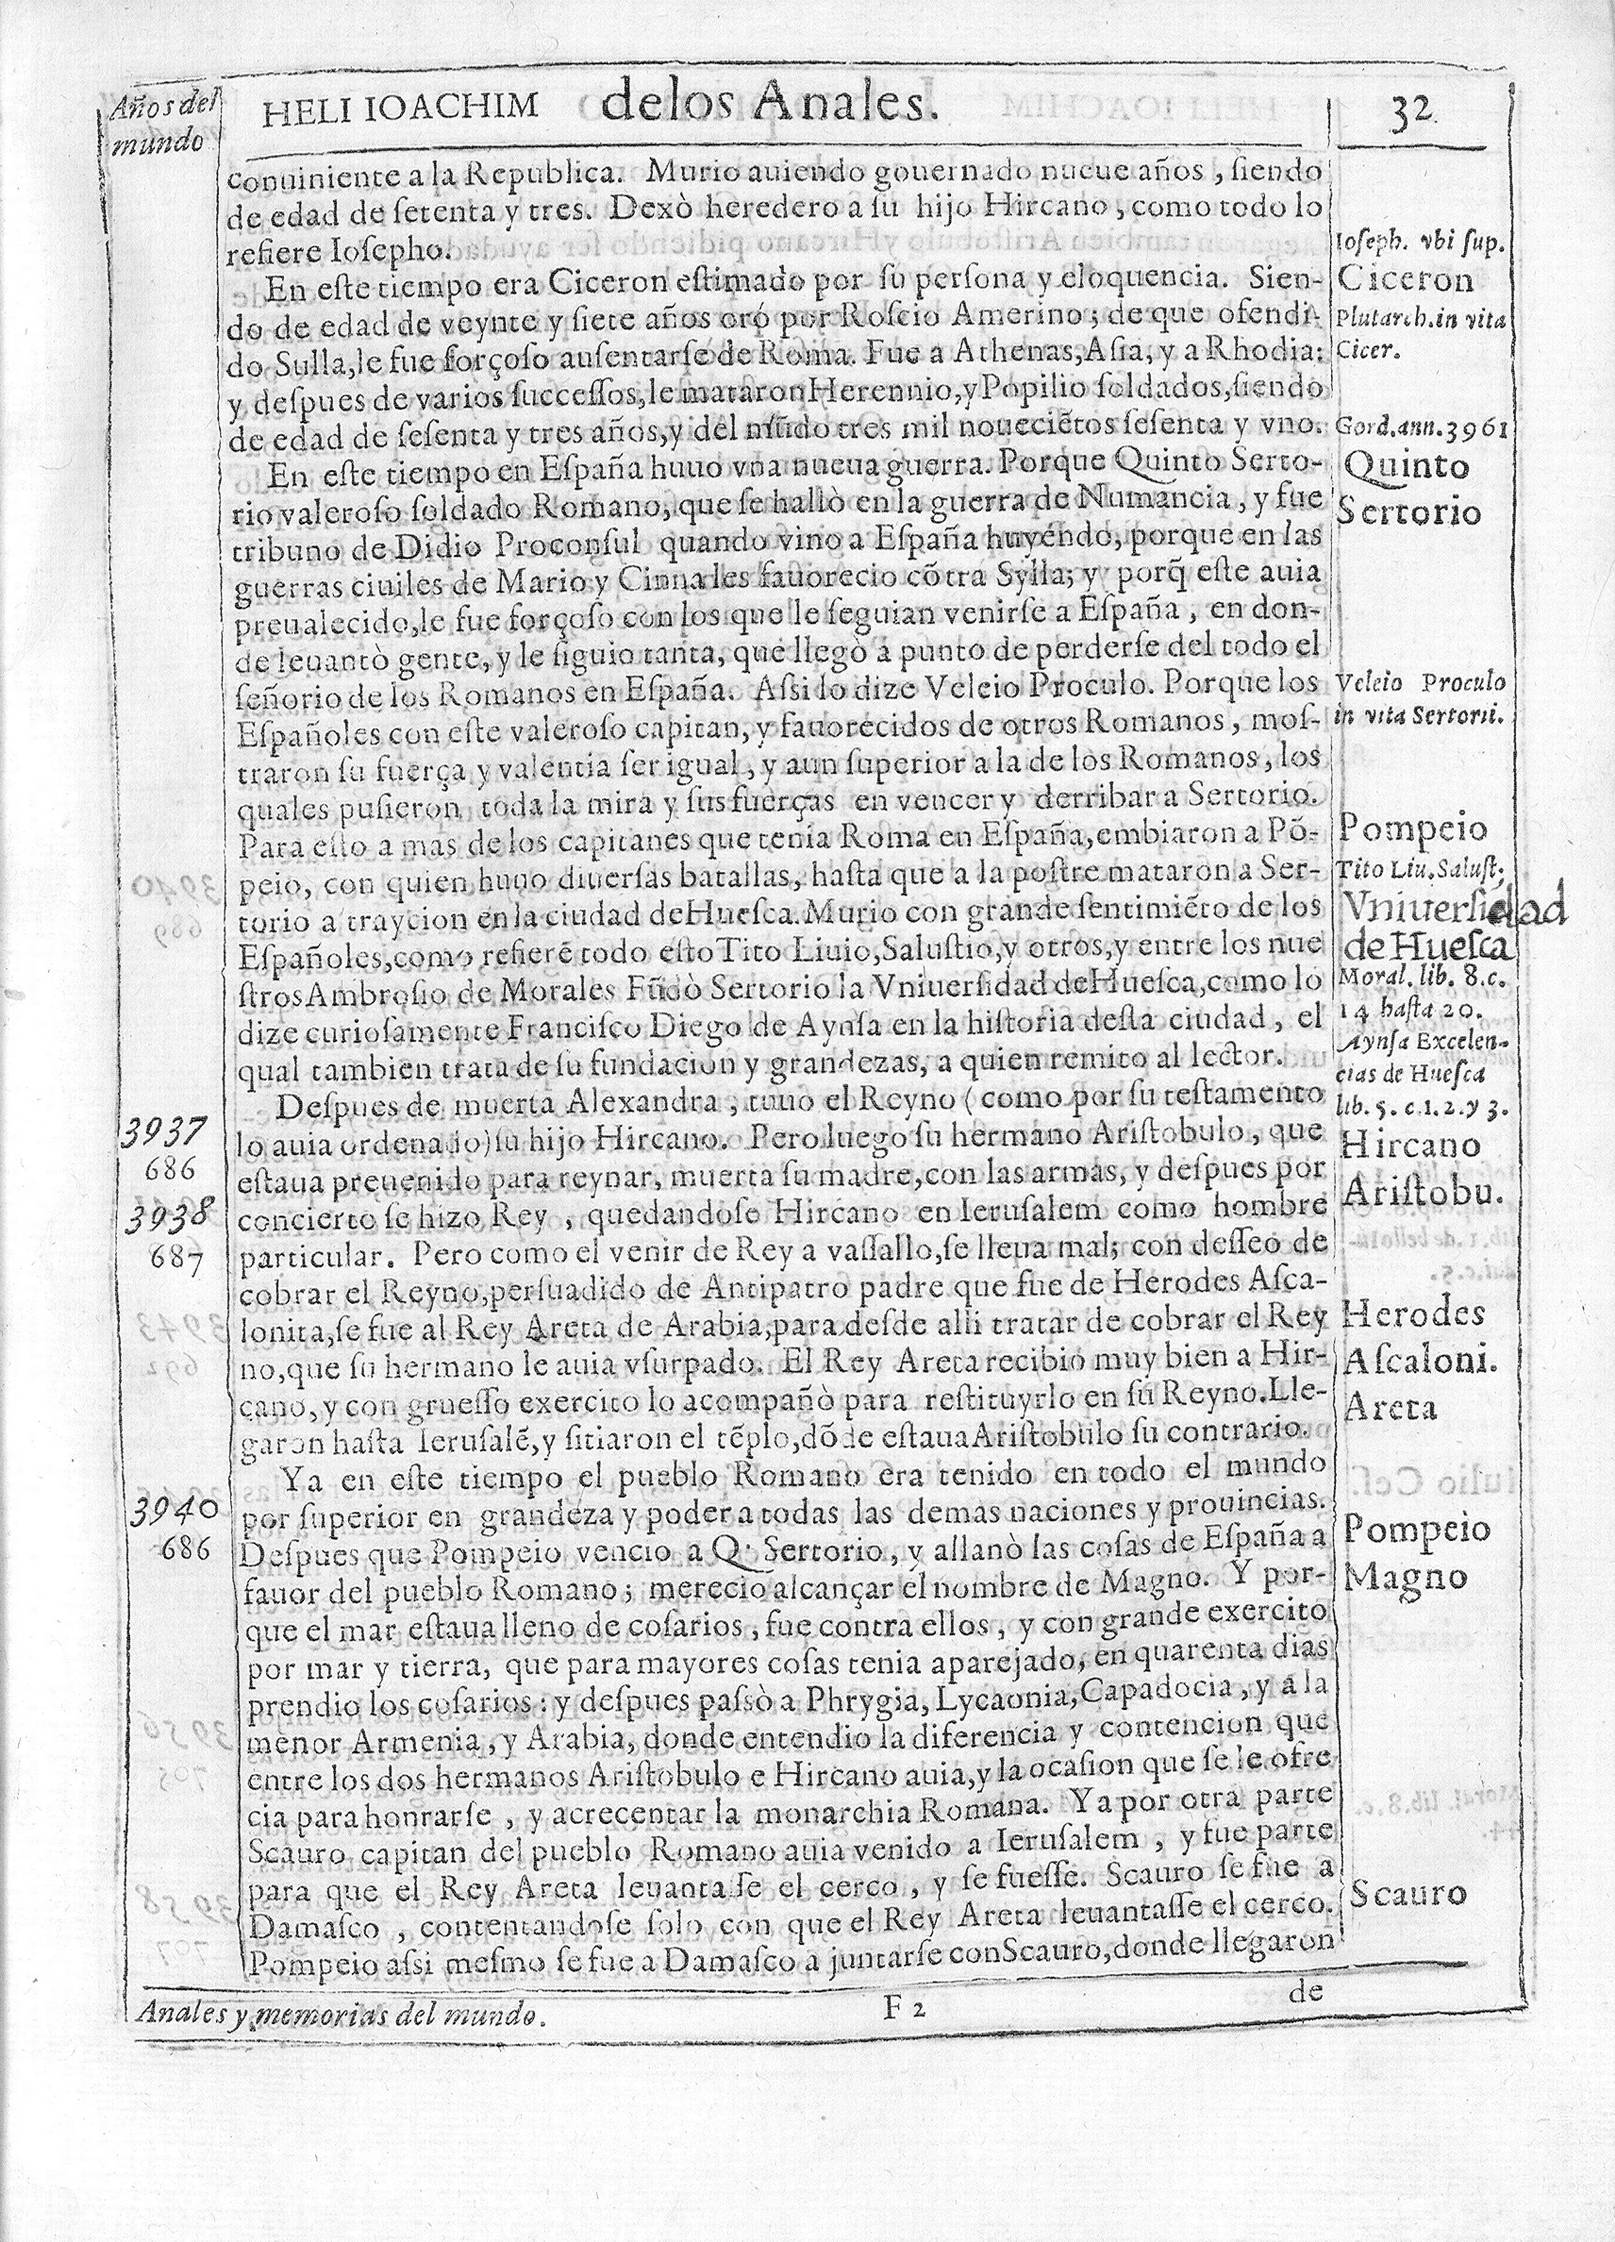 Años del
mundo
HELI IOACHIM delos Anales. 32
conuiniente a la Republica. Murio auiendo gouernado nueue años, ſiendo
de edad de ſetenta y tres. Dexò heredero a ſu hijo Hircano, como todo lo
refiere Ioſepho.
En eſte tiempo era Ciceron eſtimado por ſu perſona y eloquencia. Sien-
do de edad de veynte y ſiete años oró por Roſcio Amerino; de que ofendi-
do Sulla, le fue forçoſo auſentarſe de Roma. Fue a Athenas, Aſia, y a Rhodia:
y deſpues de varios ſucceſſos, le mataron Herennio, y Popilio ſoldados, ſiendo
de edad de ſeſenta y tres años, y del mũdo tres mil noueciẽtos ſeſenta y vno.
En eſte tiempo en Eſpaña huuo vna nueua guerra. Porque Quinto Serto-
rio valeroſo ſoldado Romano, que ſe hallò en la guerra de Numancia, y fue
tribuno de Didio Proconſul quando vino a Eſpaña huyendo, porque en las
guerras ciuiles de Mario y Cinna les fauorecio cõtra Sylla; y porq̃ eſte auia
preualecido, le fue forçoſo con los que le ſeguian venirſe a Eſpaña, en don-
de leuantò gente, y le ſiguio tanta, que llegò a punto de perderſe del todo el
ſeñorio de los Romanos en Eſpaña. Aſsi lo dize Veleio Proculo. Porque los
Eſpañoles con eſte valeroſo capitan, y fauorecidos de otros Romanos, moſ-
traron ſu fuerça y valentia ſer igual, y aun ſuperior a la de los Romanos, los
quales puſieron toda la mira y ſus fuerças en vencer y derribar a Sertorio.
Para eſto a mas de los capitanes que tenia Roma en Eſpaña, embiaron a Põ-
peio, con quien huuo diuerſas batallas, haſta que a la poſtre mataron a Ser-
torio a traycion en la ciudad de Hueſca. Murio con grande ſentimiẽto de los
Eſpañoles, como refierẽ todo eſto Tito Liuio, Saluſtio, y otros, y entre los nue
ſtros Ambroſio de Morales Fũdò Sertorio la Vniuerſidad de Hueſca, como lo
dize curioſamente Franciſco Diego de Aynſa en la hiſtoria deſta ciudad, el
qual tambien trata de ſu fundacion y grandezas, a quien remito al lector.
Deſpues de muerta Alexandra, tuuo el Reyno (como por ſu teſtamento
lo auia ordenado) ſu hijo Hircano. Pero luego ſu hermano Ariſtobulo, que
eſtaua preuenido para reynar, muerta ſu madre, con las armas, y deſpues por
concierto ſe hizo Rey, quedandoſe Hircano en Ieruſalem como hombre
particular. Pero como el venir de Rey a vaſſallo, ſe lleua mal; con deſſeo de
cobrar el Reyno, perſuadido de Antipatro padre que fue de Herodes Aſca-
lonita, ſe fue al Rey Areta de Arabia, para deſde alli tratar de cobrar el Rey
no, que ſu hermano le auia vſurpado. El Rey Areta recibio muy bien a Hir-
cano, y con grueſſo exercito lo acompañò para reſtituyrlo en ſu Reyno. Lle-
garon haſta Ieruſalẽ, y ſitiaron el tẽplo, dõde eſtaua Ariſtobulo ſu contrario.
Ya en eſte tiempo el pueblo Romano era tenido en todo el mundo
por ſuperior en grandeza y poder a todas las demas naciones y prouincias.
Deſpues que Pompeio vencio a Q. Sertorio, y allanò las coſas de Eſpaña a
fauor del pueblo Romano; merecio alcançar el nombre de Magno. Y por-
que el mar eſtaua lleno de coſarios, fue contra ellos, y con grande exercito
por mar y tierra, que para mayores coſas tenia aparejado, en quarenta dias
prendio los coſarios: y deſpues paſsò a Phrygia, Lycaonia, Capadocia, y a la
menor Armenia, y Arabia, donde entendio la diferencia y contencion que
entre los dos hermanos Ariſtobulo e Hircano auia, y la ocaſion que ſe le ofre
cia para honrarſe, y acrecentar la monarchia Romana. Ya por otra parte
Scauro capitan del pueblo Romano auia venido a Ieruſalem, y fue parte
para que el Rey Areta leuantaſſe el cerco, y ſe fueſſe. Scauro ſe fue a
Damaſco, contentandoſe ſolo con que el Rey Areta leuantaſſe el cerco.
Pompeio aſsi meſmo ſe fue a Damaſco a juntarſe con Scauro, donde llegaron
de
Anales y memorias del mundo. F 2
3937
686
3938
687
3940
686
Ioſeph. vbi ſup.
Ciceron
Plutarch. in vita
Cicer.
Gord. ann. 3961
Quinto
Sertorio
Veleio Proculo
in vita Sertorii.
Pompeio
Tito Liu. Saluſt;
Vniuerſidad
de Hueſca
Moral. lib. 8. c.
14 haſta 20.
Aynſa Excelen-
cias de Hueſca
lib. 5. c. 1. 2. y 3.
Hircano
Ariſtobu.
Herodes
Aſcaloni.
Areta
Pompeio
Magno
Scauro